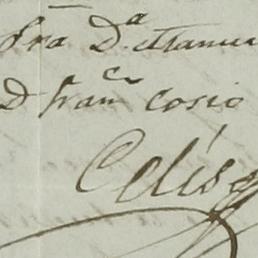 Sra Dª Manu
D Franco Cosio
Celis